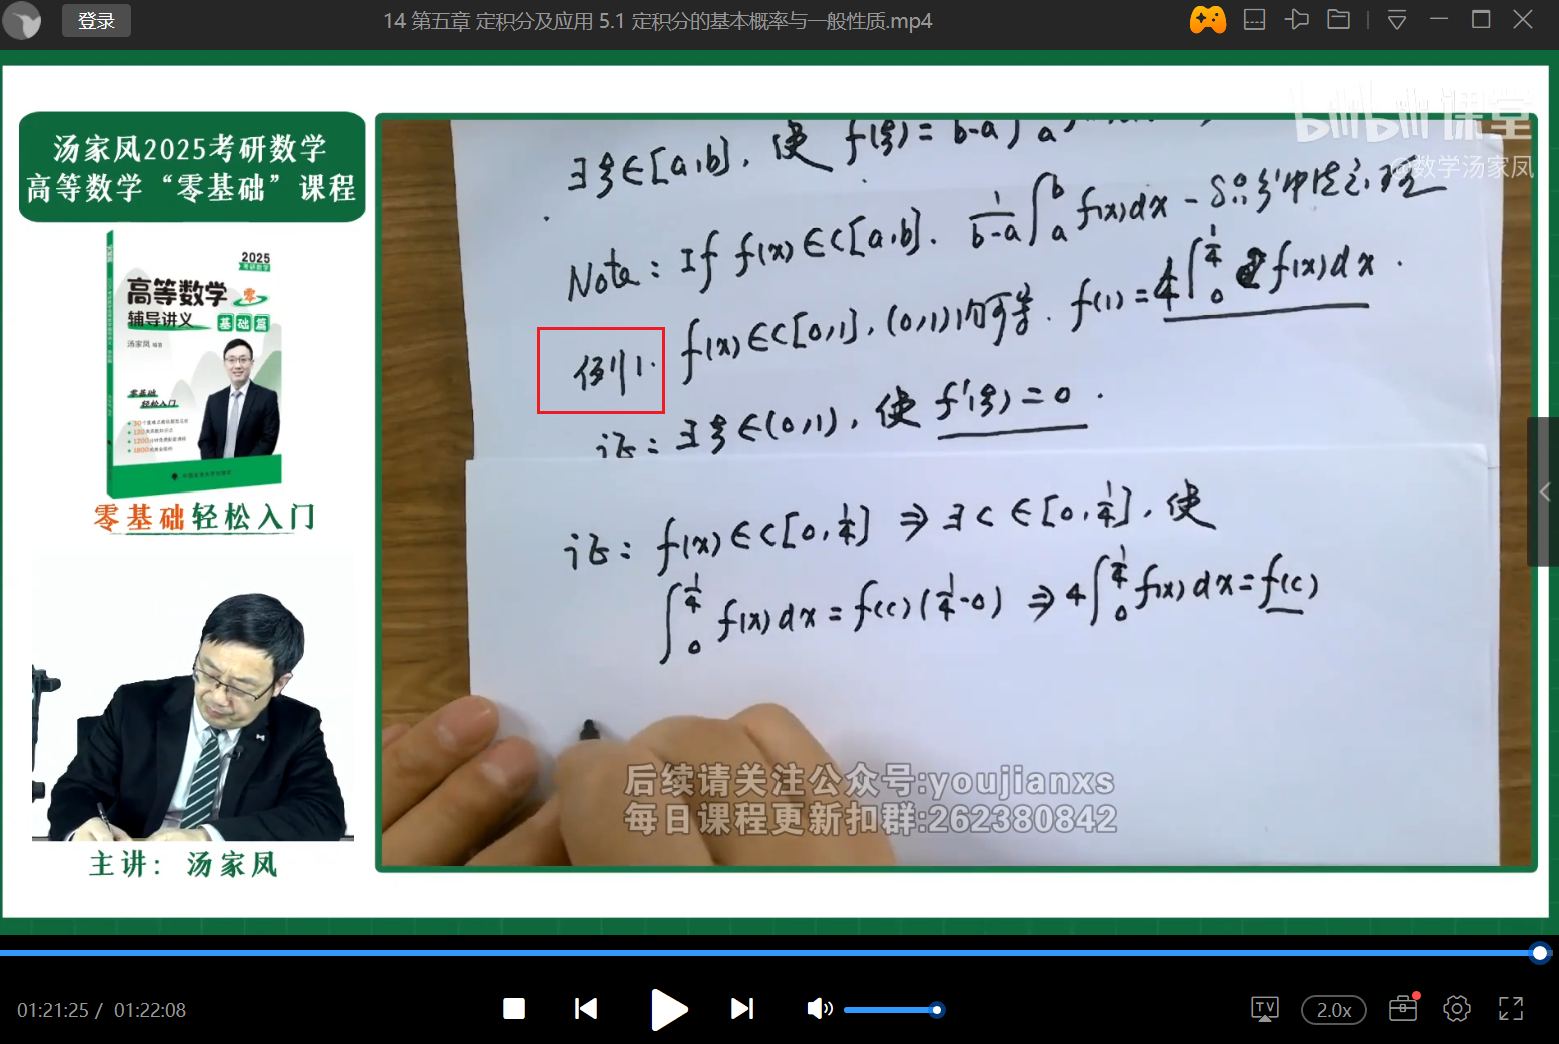 登录
14 第五章 定积分及应用 5.1 定积分的基本概率与一般性质.mp4
bilibili 课堂
@数学汤家凤
汤家凤2025考研数学
高等数学“零基础”课程
2025
考研数学
高等数学 零
辅导讲义 基础篇
汤家凤 编著
零基础
轻松入门
零基础轻松入门
主讲: 汤家凤
∃ξ∈[a,b], 使 f(ξ)=
Note: If f(x)∈C[a,b]. 1/(b-a) ∫_a^b f(x)dx -
例1. f(x)∈C[0,1], (0,1)内可导. f(1)=4∫_0^{1/4} f(x)dx.
证: ∃ξ∈(0,1), 使 f'(ξ)=0.
证: f(x)∈C[0,1/4] ⇒ ∃c∈[0,1/4], 使
∫_0^{1/4} f(x)dx=f(c)(1/4-0) ⇒ 4∫_0^{1/4} f(x)dx=f(c)
后续请关注公众号:youjianxs
每日课程更新扣群:262380842
01:21:25 / 01:22:08
TV
2.0x